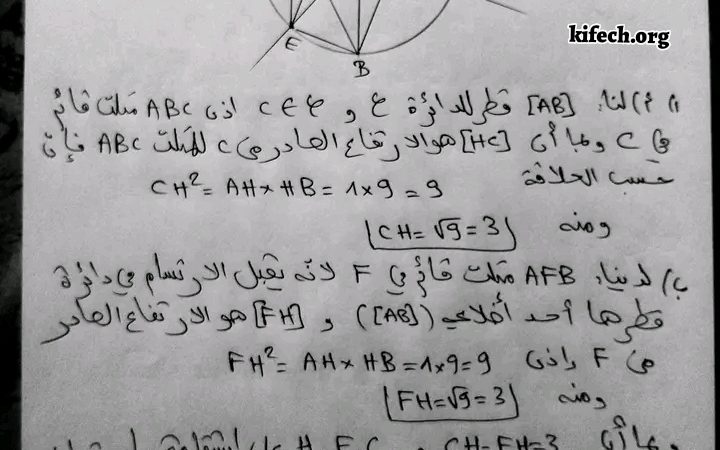 kifech.org
E
B
1) أ) لنا: [AB] قطر للدائرة ع و C ∈ ع اذن ABC مثلث قائم
في C وبما أن [HC] هو الارتفاع الصادر من C للمثلث ABC فإن
حسب العلاقة CH² = AH × HB = 1 × 9 = 9
ومنه CH = √9 = 3
ب) لدينا: AFB مثلث قائم في F لانه يقبل الارتسام في دائرة
قطرها أحد أضلاعه ([AB]) و [FH] هو الارتفاع الصادر
من F إذن FH² = AH × HB = 1 × 9 = 9
ومنه FH = √9 = 3
وبما أن CH = FH = 3